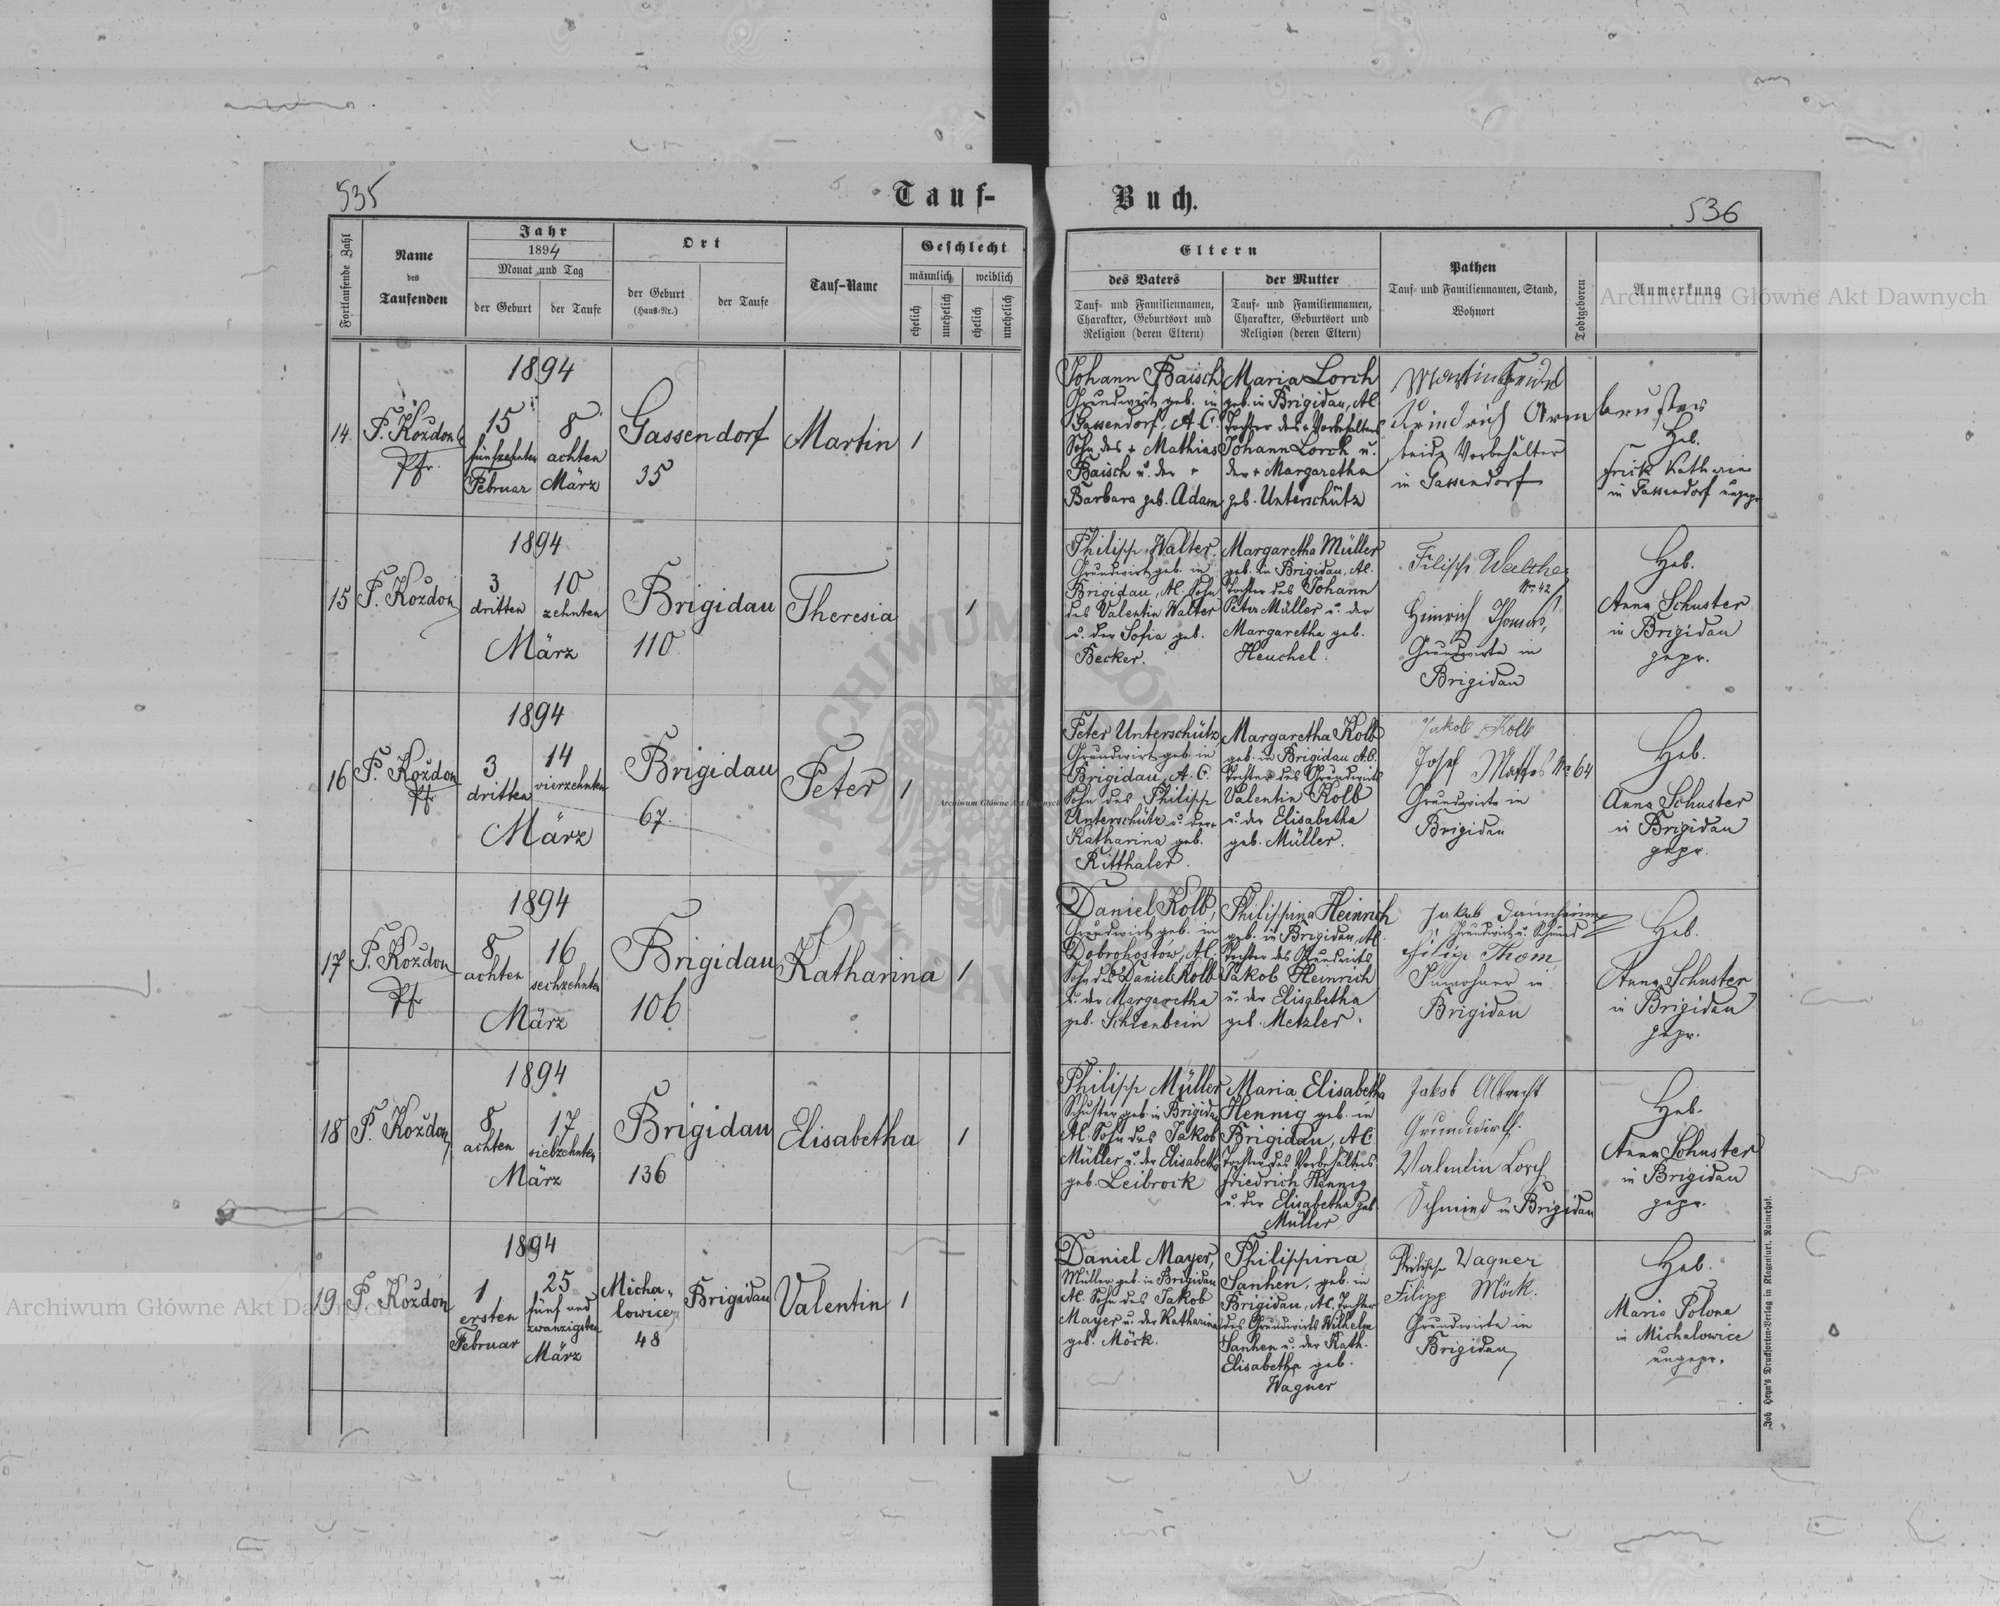 535
Tauf-
Buch.
536
Fortlaufende Zahl
Name
des
Taufenden
Jahr
1894
Monat und Tag
der Geburt
der Taufe
Ort
der Geburt
(Haus-Nr.)
der Taufe
Tauf-Name
Geschlecht
männlich
weiblich
ehelich
unehelich
ehelich
unehelich
Eltern
des Vaters
Tauf- und Familiennamen,
Charakter, Geburtsort und
Religion (deren Eltern)
der Mutter
Tauf- und Familiennamen,
Charakter, Geburtsort und
Religion (deren Eltern)
Pathen
Tauf- und Familiennamen, Stand,
Wohnort
Todtgeboren
Anmerkung
14.
F. Kozdon
Pfr.
1894
15
fünfzehnten
Februar
8
achten
März
Gassendorf
35
Martin
1
Johann Baisch
Grundwirt geb. in
Gassendorf, A.C.
Sohn des + Mathias
Baisch u. der +
Barbara geb. Adam
Maria Lorch
geb. in Brigidau, AC
Tochter des + Vorbehalters
Johann Lorch u.
der + Margaretha
geb. Unterschütz
Martin
Armbruster
beide Vorbehälter
in Gassendorf
Heb.
Frick Katharina
in Gassendorf ungepr
15
F. Kozdon
1894
3
dritten
10
zehnten
März
Brigidau
110
Theresia
1
Philipp Walter
Grundwirt geb. in
Brigidau, AC. Sohn
des Valentin Walter
u. der Sofia geb.
Becker.
Margaretha Müller
geb. in Brigidau, AC.
Tochter des Johann
Peter Müller u. der
Margaretha geb.
Heuchel.
Filipp Walther
No 42
Heinrich Thomas
Grundwirte in
Brigidau
Heb.
Anna Schuster
in Brigidau
gepr.
16
F. Kozdon
Pfr
1894
3
dritten
14
vierzehnten
März
Brigidau
67.
Peter
1
Peter Unterschütz
Grundwirt geb. in
Brigidau, A.C.
Sohn des Philipp
Unterschütz u. der +
Katharina geb.
Ritthaler.
Margaretha Kolb
geb. in Brigidau AC.
Tochter des Grundwirts
Valentin Kolb
u. der Elisabetha
geb. Müller.
Jakob Kolb
Josef Mattes No 64
Grundwirte in
Brigidau
Heb.
Anna Schuster
in Brigidau
gepr.
17
F. Kozdon
Pfr
1894
8
achten
16
sechzehnten
März
Brigidau
106
Katharina
1
Daniel Kolb,
Grundwirt geb. in
Dobrohostów, AC.
Sohn des Daniel Kolb
u. der Margaretha
geb. Schienbein
Philippina Heinrich
geb. in Brigidau, AC.
Tochter des Grundwirts
Jakob Heinrich
u. der Elisabetha
geb. Metzler.
Jakob
Grundwirt u. Schmied
Filipp Thom
Inwohner in
Brigidau
Heb.
Anna Schuster
in Brigidau
gepr.
18
F. Kozdon
1894
8
achten
17
siebzehnten
März
Brigidau
136
Elisabetha
1
Philipp Müller
Schuster geb. in Brigidau
AC. Sohn des Jakob
Müller u. der Elisabeth
geb. Leibrock
Maria Elisabetha
Hennig geb. in
Brigidau, AC.
Tochter des Vorbehälters
Friedrich Hennig
u. der Elisabetha geb.
Müller
Jakob Albrecht
Grundwirth.
Valentin Lorch
Schmied in Brigidau
Heb.
Anna Schuster
in Brigidau
gepr.
19
F. Kozdon
1894
1
ersten
Februar
25
fünf und
zwanzigsten
März
Micha-
lowice
48
Brigidau
Valentin
1
Daniel Mayer,
Müller geb. in Brigidau
AC. Sohn des Jakob
Mayer u. der Katharina
geb. Möck.
Philippina
Sanhen, geb. in
Brigidau, AC. Tochter
des Grundwirts Wilhelm
Sanhen u. der Kath.
Elisabetha geb.
Wagner
Philipp Wagner
Filipp Möck.
Grundwirte in
Brigidau
Heb.
Maria Polona
in Michalowice
ungepr.
Joh. Heyn's Drucksorten-Verlag in Klagenfurt, Rainerhof.
Archiwum Główne Akt Dawnych
Archiwum Główne Akt Dawnych
Archiwum Główne Akt Dawnych